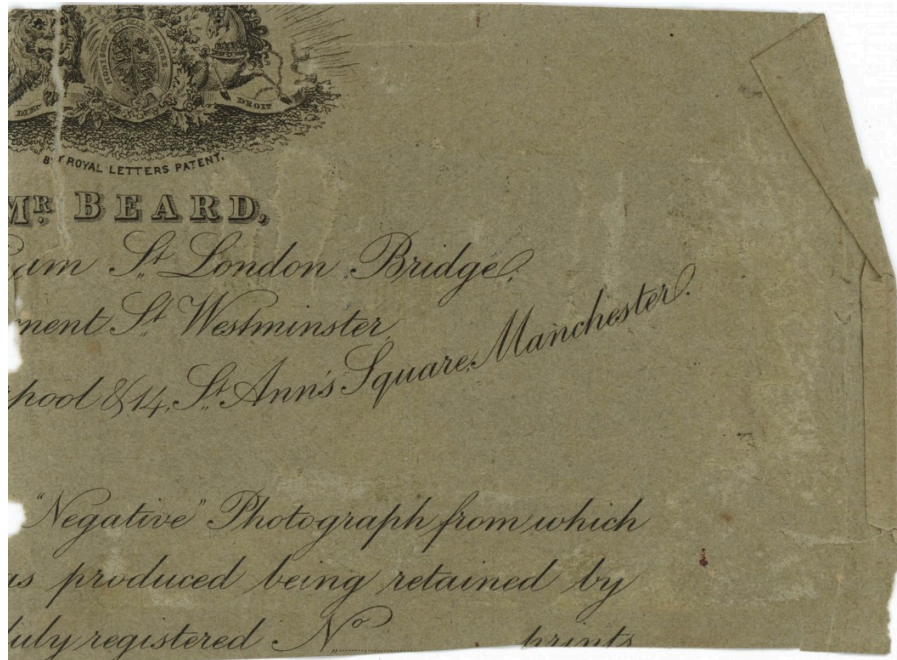 DIEU DROIT
BY ROYAL LETTERS PATENT.
MR. BEARD,
am St. London Bridge,
ment St. Westminster,
pool & 14, St. Ann's Square, Manchester.
"Negative" Photograph from which
as produced being retained by
duly registered No prints